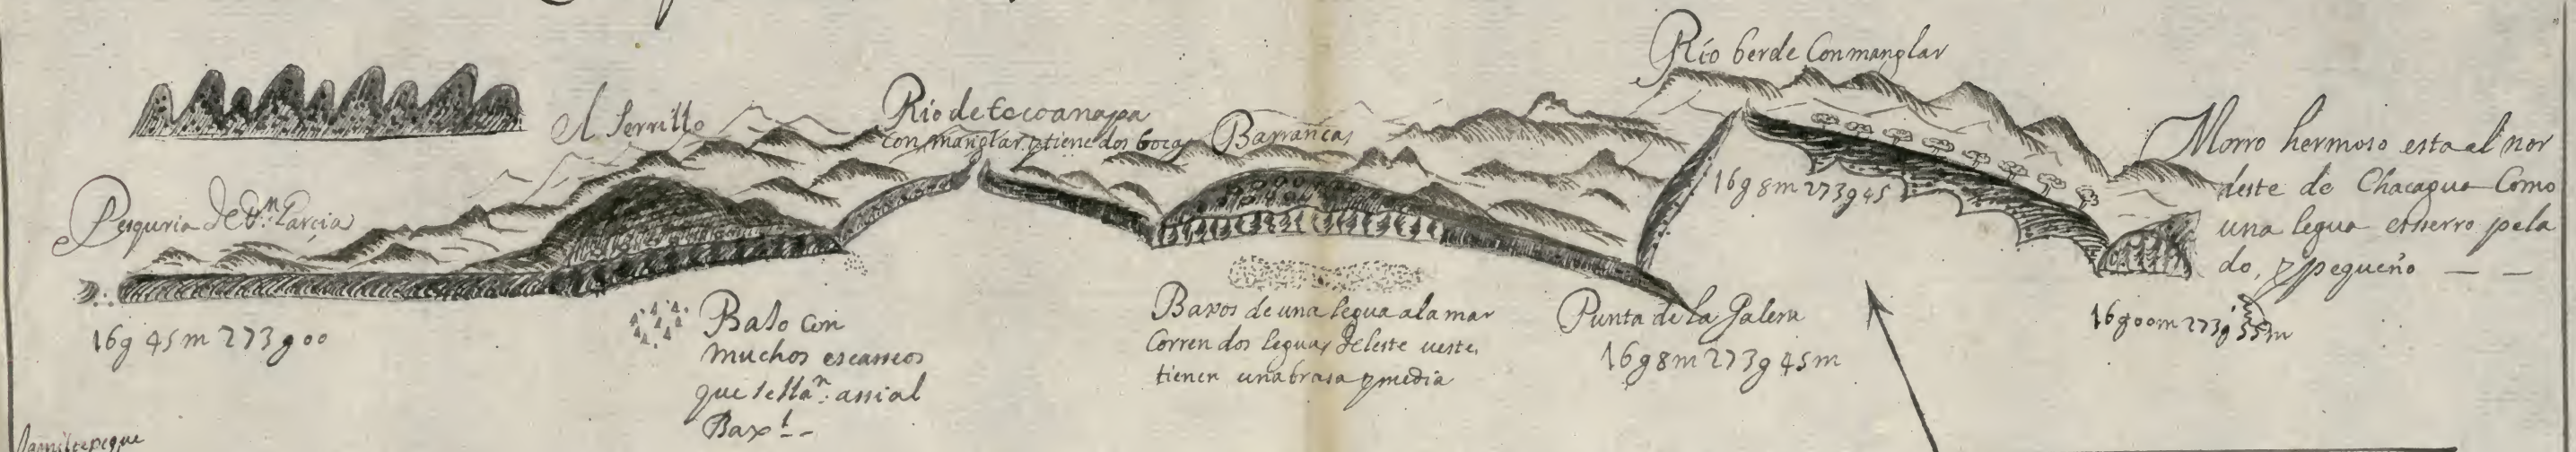 Rio berde Con manglar
Al Serrillo
Rio de tecoanapa
con manglar, y tiene dos bocas
Barrancas
Morro hermoso esta el nor
deste de Chacagua Como
una legua es serro pela
do, y pequeño — —
Pesqueria de Dn. Garçia
16g 8m 273g 45
16g 45m 273g 00
Baso Con
muchos escameos
que se llan. assi al
Baxt. -
Baxos de una legua a la mar
Corren dos leguas deleste ueste,
tienen una brasa y media
Punta de la Galera
16g 8m 273g 45m
16g 00m 273g 55m